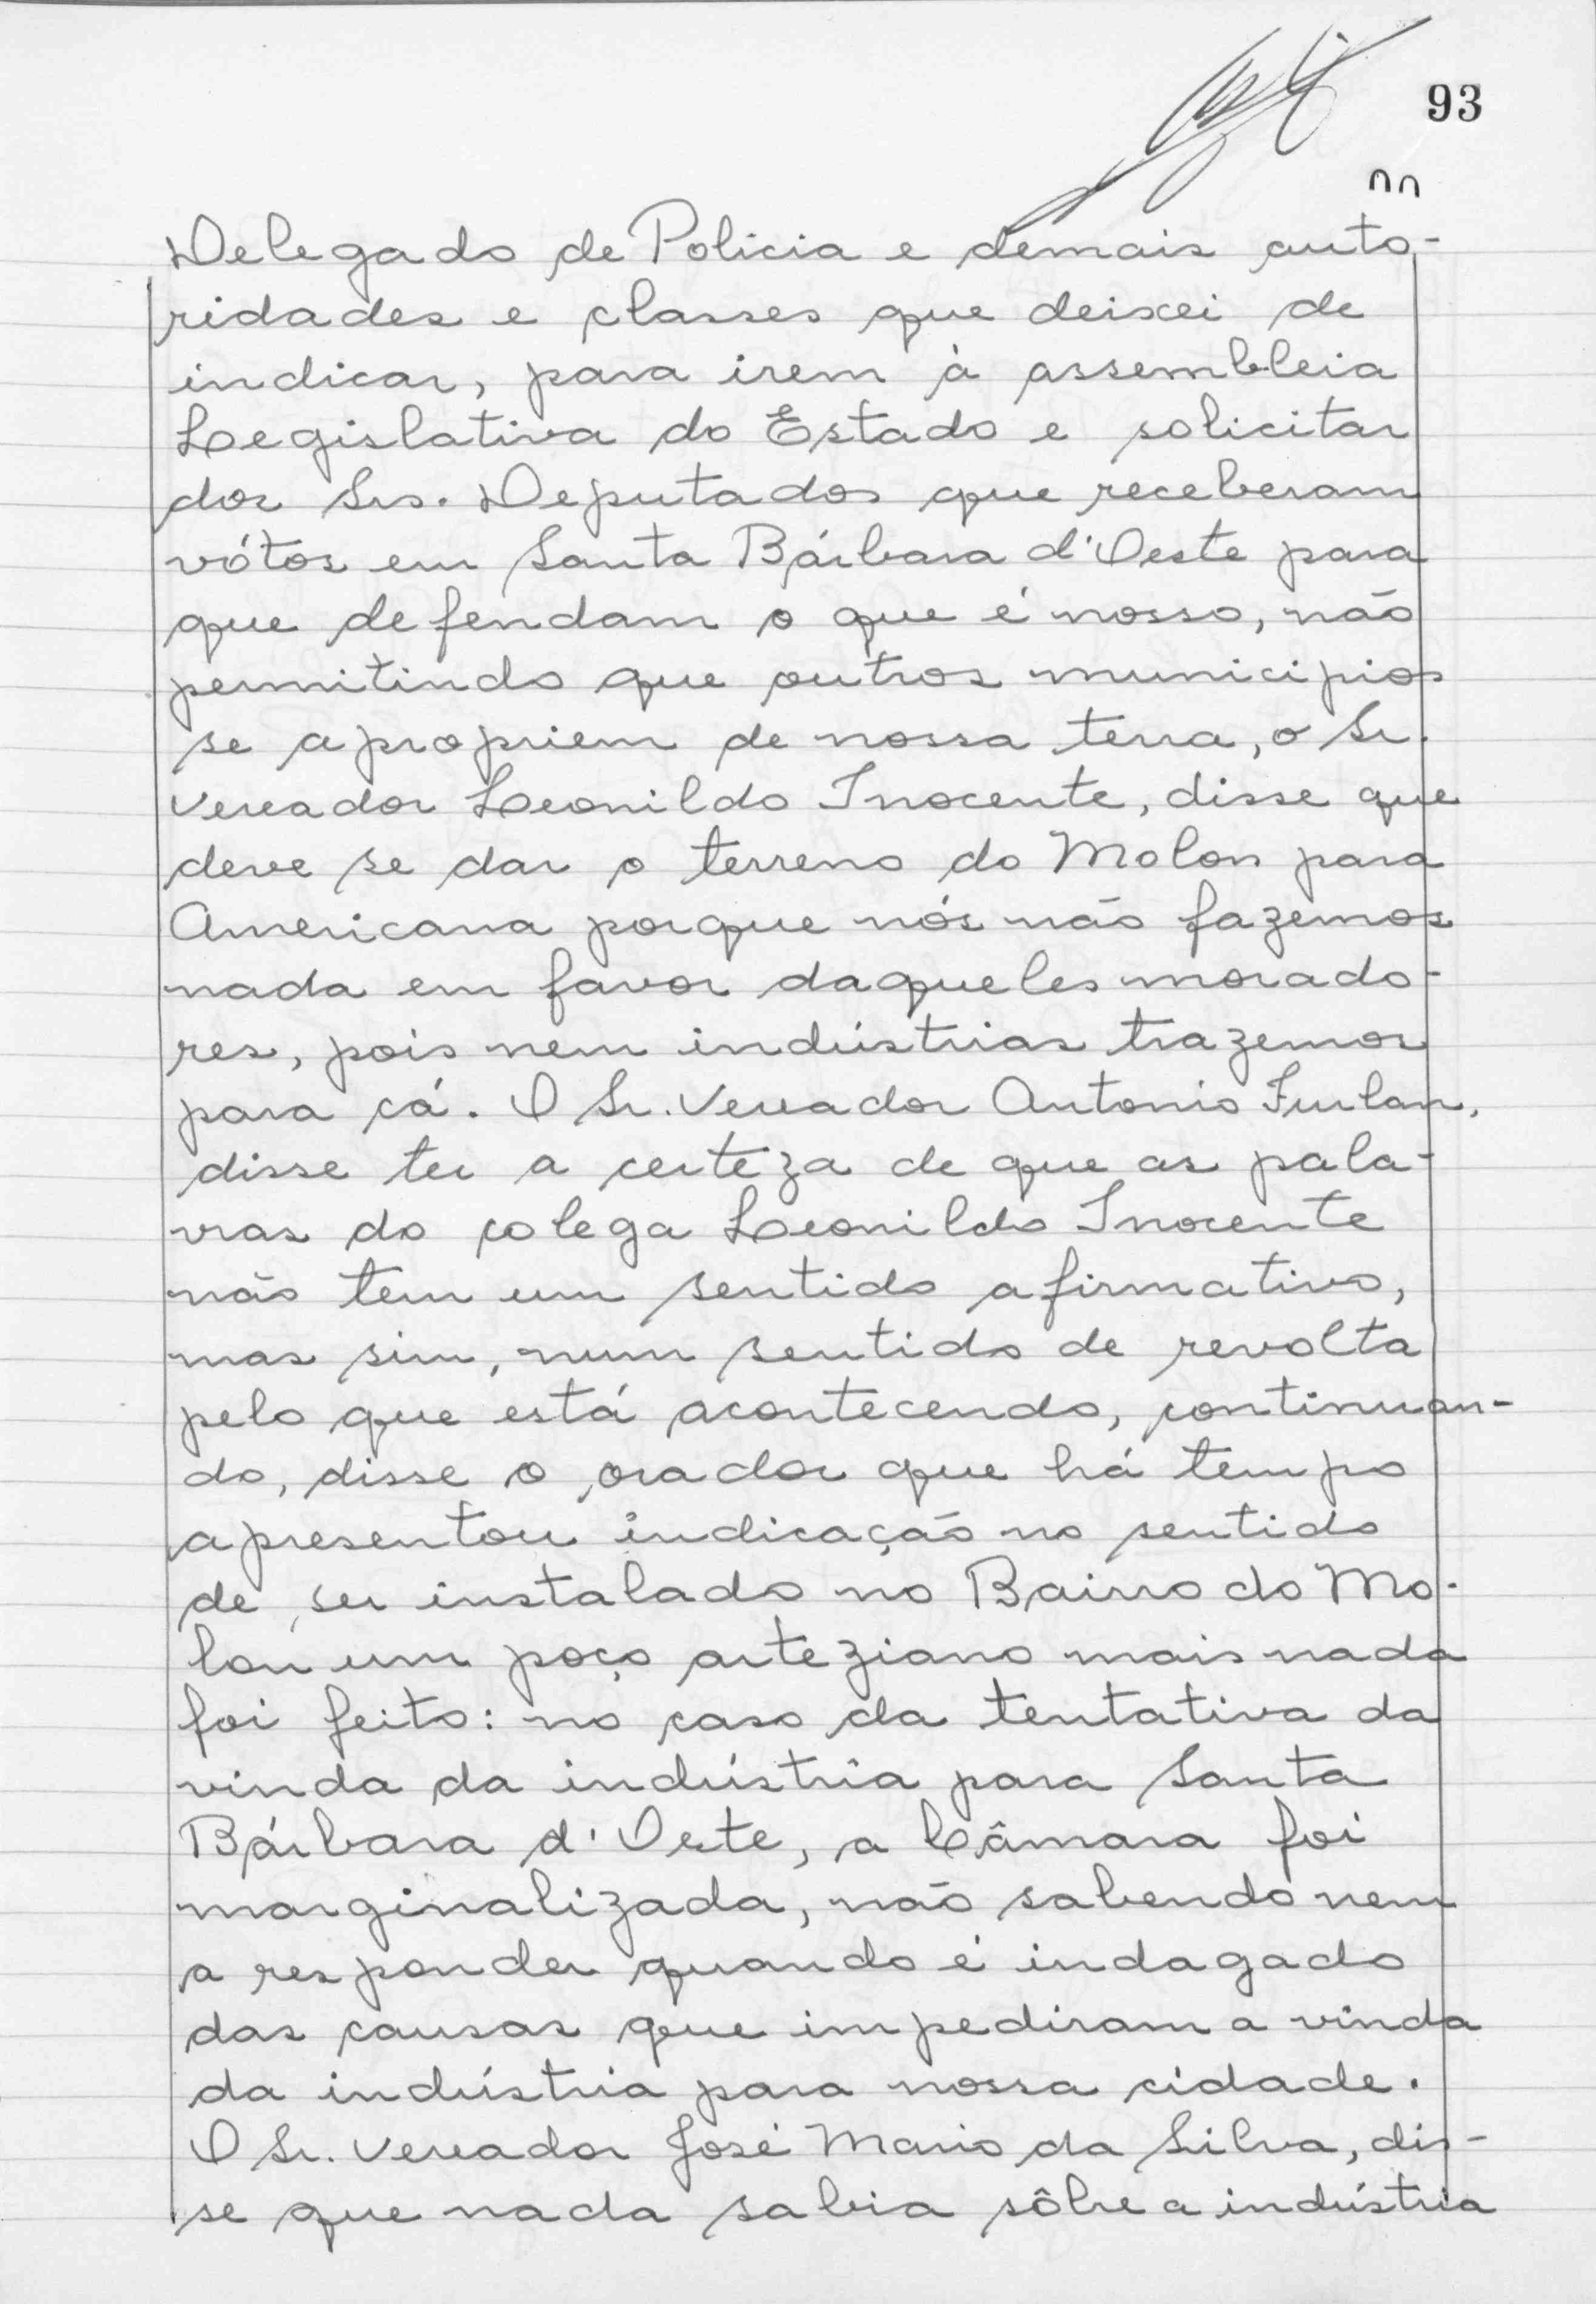 93
Delegado de Policia e demais auto-
ridades e classes que deixei de
indicar, para irem à assembleia
Legislativa do Estado e solicitar
dos Srs. Deputados que receberam
vótos em Santa Bárbara d'Oeste para
que defendam o que é nosso, não
permitindo que outros municipios
se apropriem de nossa terra, o Sr.
Vereador Leonildo Inocente, disse que
deve se dar o terreno do Molon para
Americana porque nós não fazemos
nada em favor daqueles morado-
res, pois nem indústrias trazemos
para cá. O Sr. Vereador Antonio Furlan,
disse ter a certeza de que as pala-
vras do colega Leonildo Inocente
não tem um sentido afirmativo,
mas sim, num sentido de revolta
pelo que está acontecendo, continuan-
do, disse o orador que há tempo
apresentou indicação no sentido
de ser instalado no Bairro do Mo-
lon um poço arteziano mais nada
foi feito: no caso da tentativa da
vinda da indústria para Santa
Bárbara d'Oeste, a Câmara foi
marginalizada, não sabendo nem
a responder quando é indagado
das causas que impediram a vinda
da indústria para nossa cidade.
O Sr. Vereador José Maria da Silva, dis-
se que nada sabia sôbre a indústria